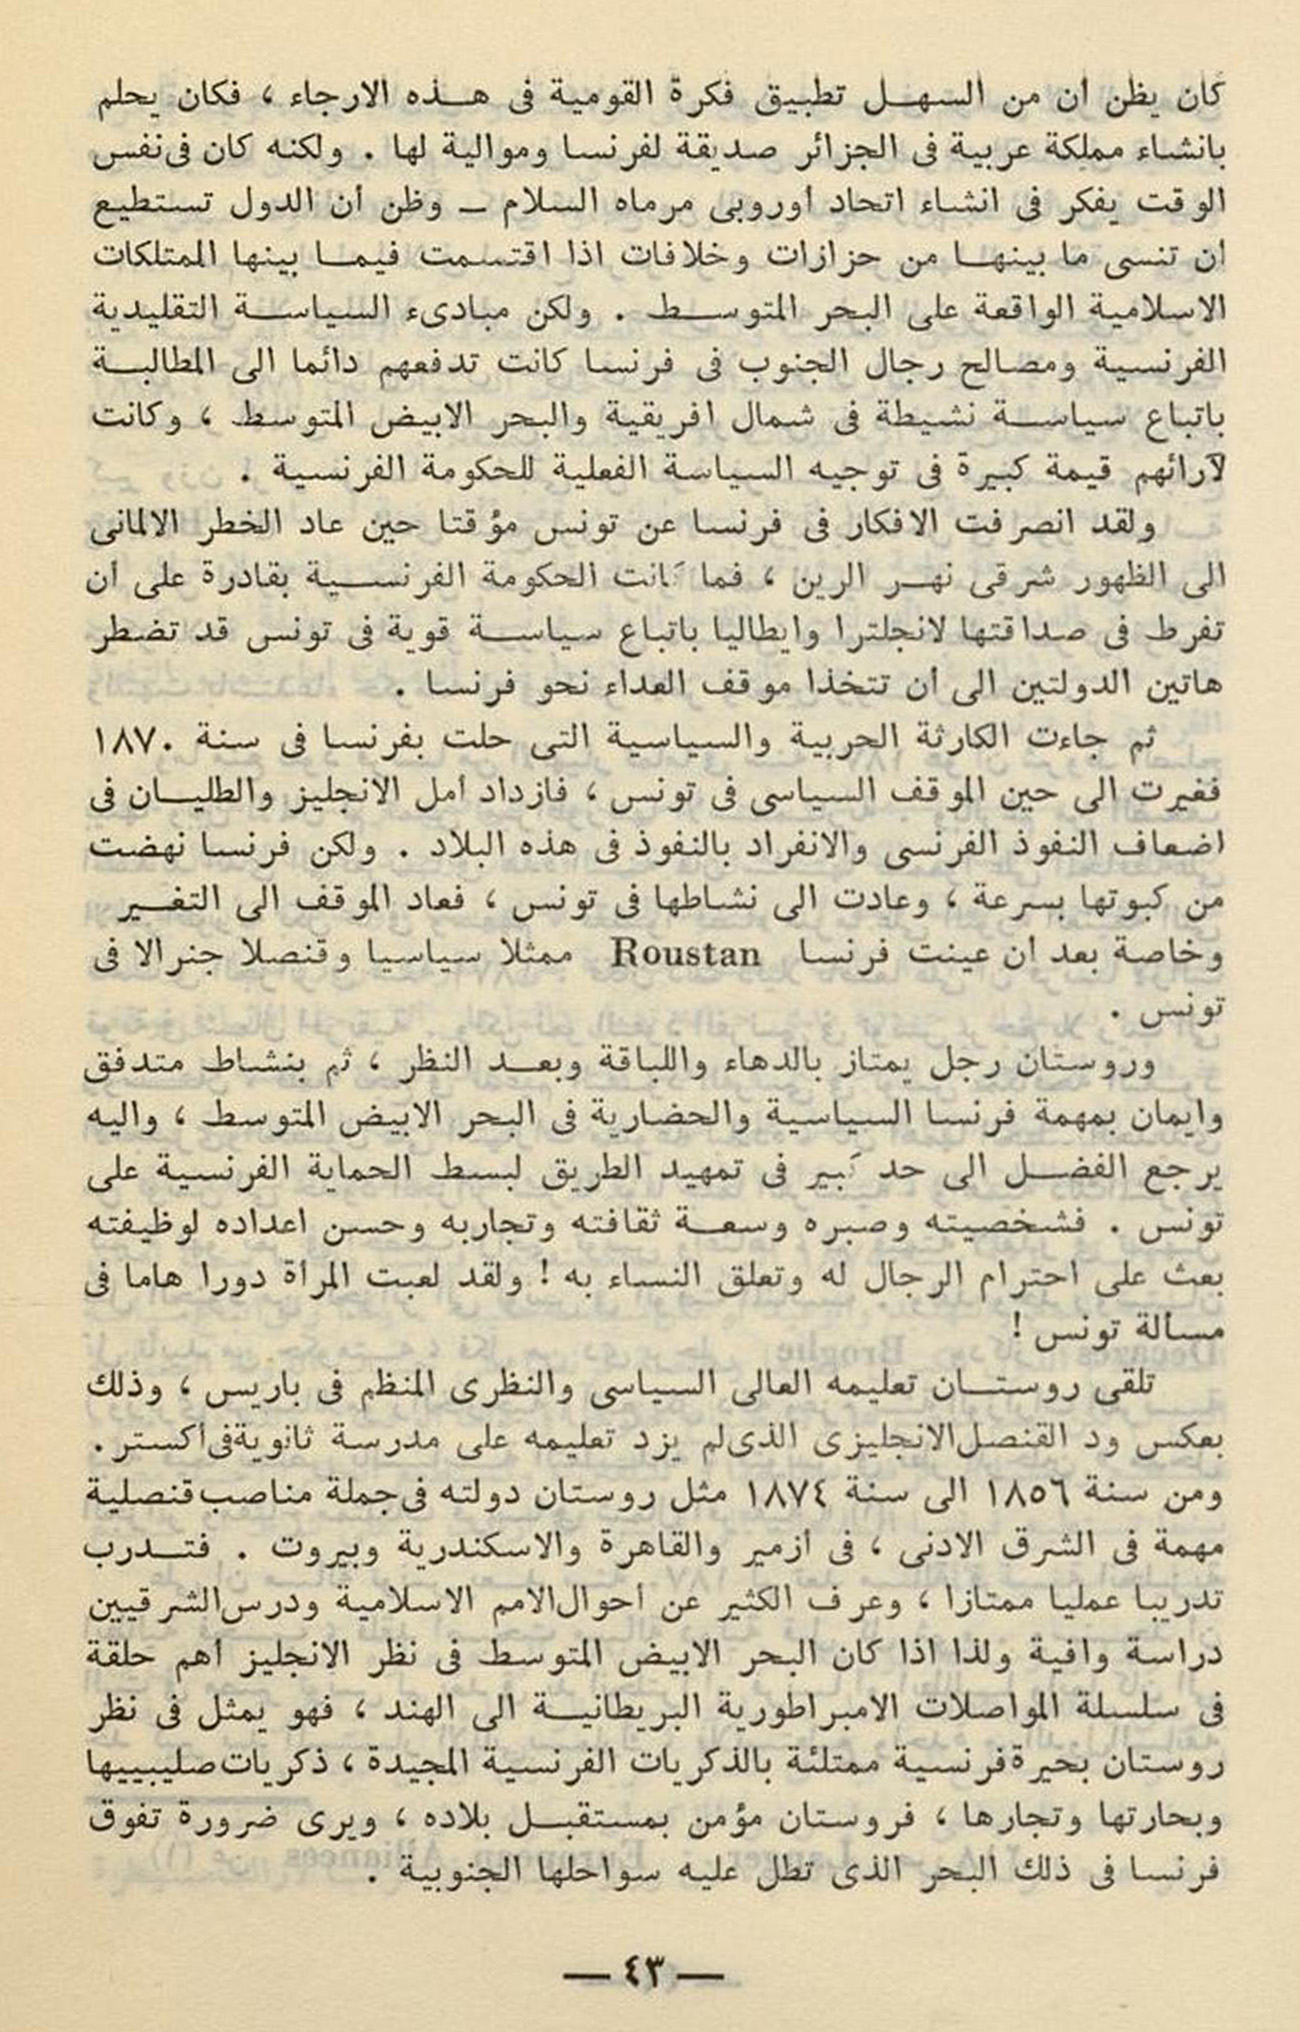 كان يظن ان من السهل تطبيق فكرة القومية فى هذه الارجاء ، فكان يحلم
بانشاء مملكة عربية فى الجزائر صديقة لفرنسا وموالية لها . ولكنه كان فى نفس
الوقت يفكر فى انشاء اتحاد أوروبى مرماه السلام – وظن أن الدول تستطيع
ان تنسى ما بينها من حزازات وخلافات اذا اقتسمت فيما بينها الممتلكات
الاسلامية الواقعة على البحر المتوسط . ولكن مبادىء السياسة التقليدية
الفرنسية ومصالح رجال الجنوب فى فرنسا كانت تدفعهم دائما الى المطالبة
باتباع سياسة نشيطة فى شمال افريقية والبحر الابيض المتوسط ، وكانت
لآرائهم قيمة كبيرة فى توجيه السياسة الفعلية للحكومة الفرنسية .
ولقد انصرفت الافكار فى فرنسا عن تونس مؤقتا حين عاد الخطر الالمانى
الى الظهور شرقى نهر الرين ، فما كانت الحكومة الفرنسية بقادرة على أن
تفرط فى صداقتها لانجلترا وايطاليا باتباع سياسة قوية فى تونس قد تضطر
هاتين الدولتين الى أن تتخذا موقف العداء نحو فرنسا .
ثم جاءت الكارثة الحربية والسياسية التى حلت بفرنسا فى سنة ١٨٧٠
فغيرت الى حين الموقف السياسى فى تونس ، فازداد أمل الانجليز والطليان فى
اضعاف النفوذ الفرنسى والانفراد بالنفوذ فى هذه البلاد . ولكن فرنسا نهضت
من كبوتها بسرعة ، وعادت الى نشاطها فى تونس ، فعاد الموقف الى التغير
وخاصة بعد أن عينت فرنسا Roustan ممثلا سياسيا وقنصلا جنرالا فى
تونس .
وروستان رجل يمتاز بالدهاء واللباقة وبعد النظر ، ثم بنشاط متدفق
وايمان بمهمة فرنسا السياسية والحضارية فى البحر الابيض المتوسط ، واليه
يرجع الفضل الى حد كبير فى تمهيد الطريق لبسط الحماية الفرنسية على
تونس . فشخصيته وصبره وسعة ثقافته وتجاربه وحسن اعداده لوظيفته
بعث على احترام الرجال له وتعلق النساء به ! ولقد لعبت المرأة دورا هاما فى
مسألة تونس !
تلقى روستان تعليمه العالى السياسى والنظرى المنظم فى باريس ، وذلك
بعكس ود القنصل الانجليزى الذى لم يزد تعليمه على مدرسة ثانوية فى أكستر .
ومن سنة ١٨٥٦ الى سنة ١٨٧٤ مثل روستان دولته فى جملة مناصب قنصلية
مهمة فى الشرق الادنى ، فى ازمير والقاهرة والاسكندرية وبيروت . فتدرب
تدريبا عمليا ممتازا ، وعرف الكثير عن احوال الامم الاسلامية ودرس الشرقيين
دراسة وافية ولذا اذا كان البحر الابيض المتوسط فى نظر الانجليز أهم حلقة
فى سلسلة المواصلات الامبراطورية البريطانية الى الهند ، فهو يمثل فى نظر
روستان بحيرة فرنسية ممتلئة بالذكريات الفرنسية المجيدة ، ذكريات صليبييها
وبحارتها وتجارها ، فروستان مؤمن بمستقبل بلاده ، ويرى ضرورة تفوق
فرنسا فى ذلك البحر الذى تطل عليه سواحلها الجنوبية .
— ٤٣ —